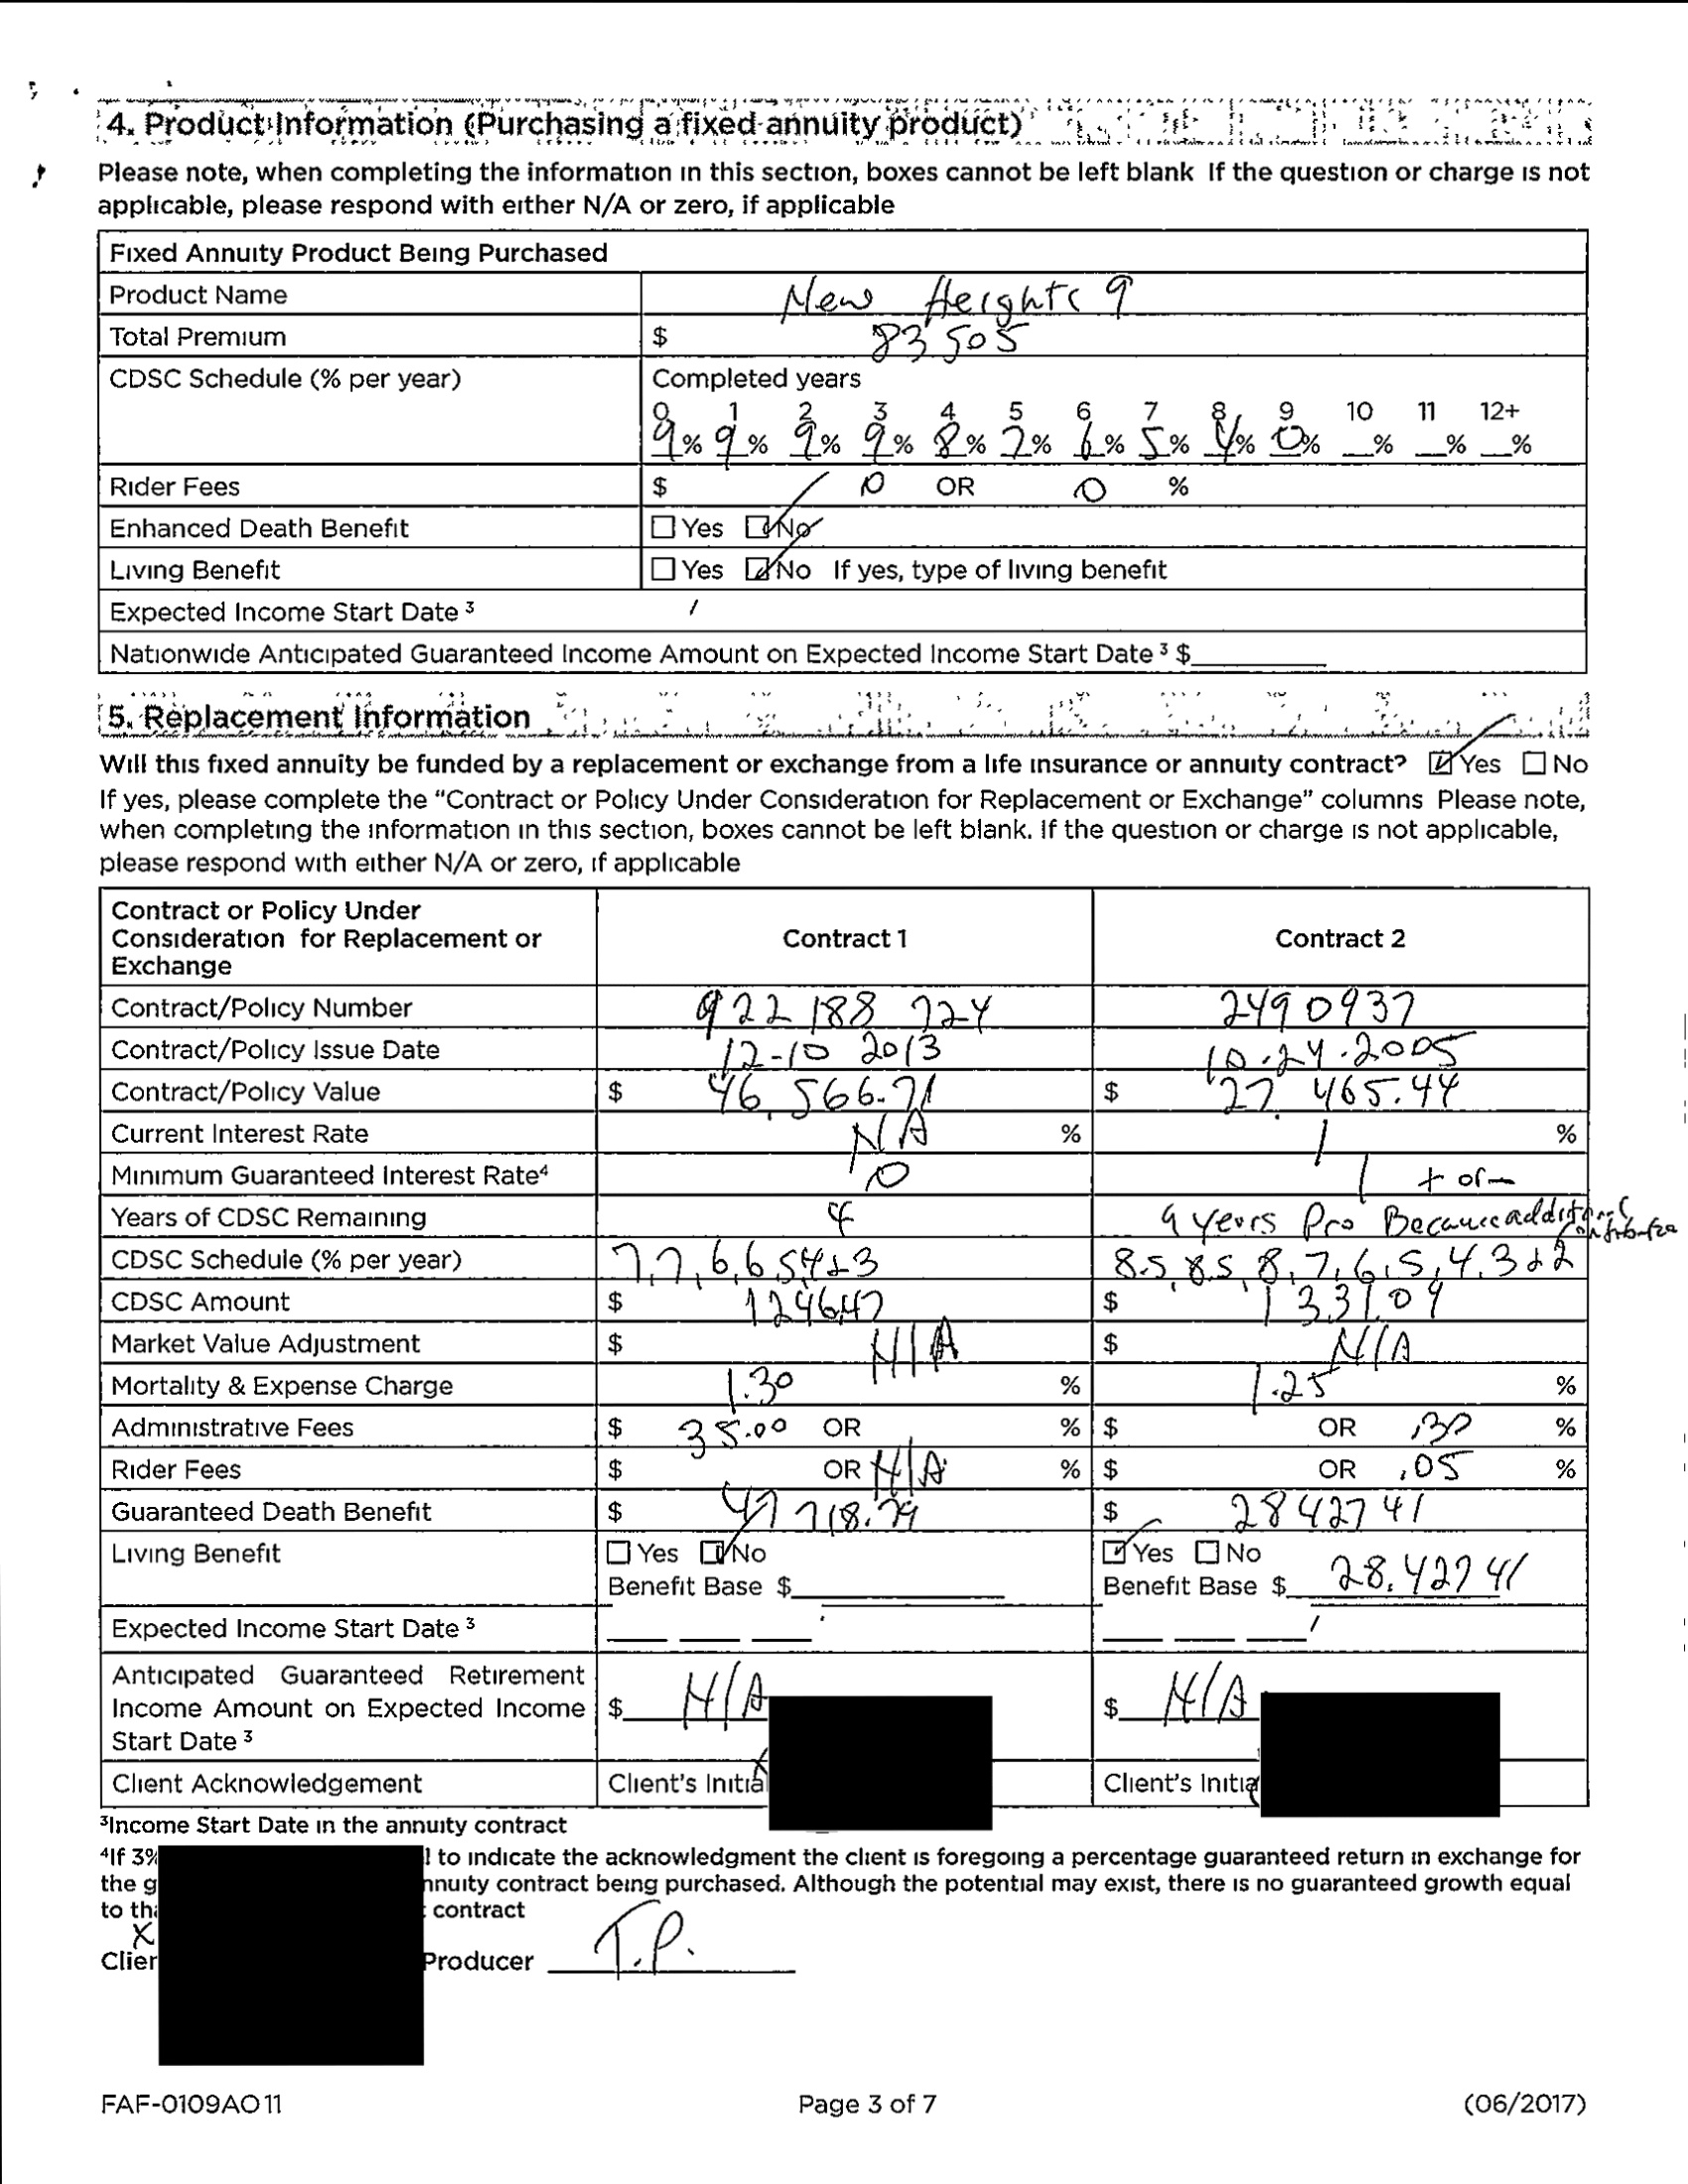 4. Product Information (Purchasing a fixed annuity product)
Please note, when completing the information in this section, boxes cannot be left blank If the question or charge is not
applicable, please respond with either N/A or zero, if applicable
Fixed Annuity Product Being Purchased
Product Name New Heights 9
Total Premium $ 83 505
CDSC Schedule (% per year) Completed years
0 1 2 3 4 5 6 7 8 9 10 11 12+
9% 9% 9% 9% 8% 7% 6% 5% 4% 0% __% __% __%
Rider Fees $ 0 OR 0 %
Enhanced Death Benefit ☐ Yes ☑ No
Living Benefit ☐ Yes ☑ No If yes, type of living benefit
Expected Income Start Date ³ /
Nationwide Anticipated Guaranteed Income Amount on Expected Income Start Date ³ $
5. Replacement Information
Will this fixed annuity be funded by a replacement or exchange from a life insurance or annuity contract? ☑ Yes ☐ No
If yes, please complete the “Contract or Policy Under Consideration for Replacement or Exchange” columns Please note,
when completing the information in this section, boxes cannot be left blank. If the question or charge is not applicable,
please respond with either N/A or zero, if applicable
Contract or Policy Under
Consideration for Replacement or
Exchange
Contract 1 Contract 2
Contract/Policy Number 922 188 724 2490937
Contract/Policy Issue Date 12-10 2013 10.24.2005
Contract/Policy Value $ 46,566.71 $ 27,465.44
Current Interest Rate N/A % 1 %
Minimum Guaranteed Interest Rate⁴ 0 1 + or -
Years of CDSC Remaining 4 9 years Pro Because additional
CDSC Schedule (% per year) 7,7,6,6 5,4 & 3 8.5, 8.5, 8, 7, 6, 5, 4, 3 & 2
CDSC Amount $ 1246.47 $ 1331.09
Market Value Adjustment $ N/A $ N/A
Mortality & Expense Charge 1.30 % 1.25 %
Administrative Fees $ 35.00 OR % $ OR .30 %
Rider Fees $ OR N/A % $ OR .05 %
Guaranteed Death Benefit $ 47 718.79 $ 28427 41
Living Benefit ☐ Yes ☑ No ☑ Yes ☐ No
Benefit Base $ Benefit Base $ 28,427 41
Expected Income Start Date ³
Anticipated Guaranteed Retirement
Income Amount on Expected Income $ N/A $ N/A
Start Date ³
Client Acknowledgement Client's Initia Client's Initia
³Income Start Date in the annuity contract
⁴If 3% l to indicate the acknowledgment the client is foregoing a percentage guaranteed return in exchange for
the g nnuity contract being purchased. Although the potential may exist, there is no guaranteed growth equal
to tha contract
X
Clien Producer T.P.
FAF-0109AO 11 Page 3 of 7 (06/2017)